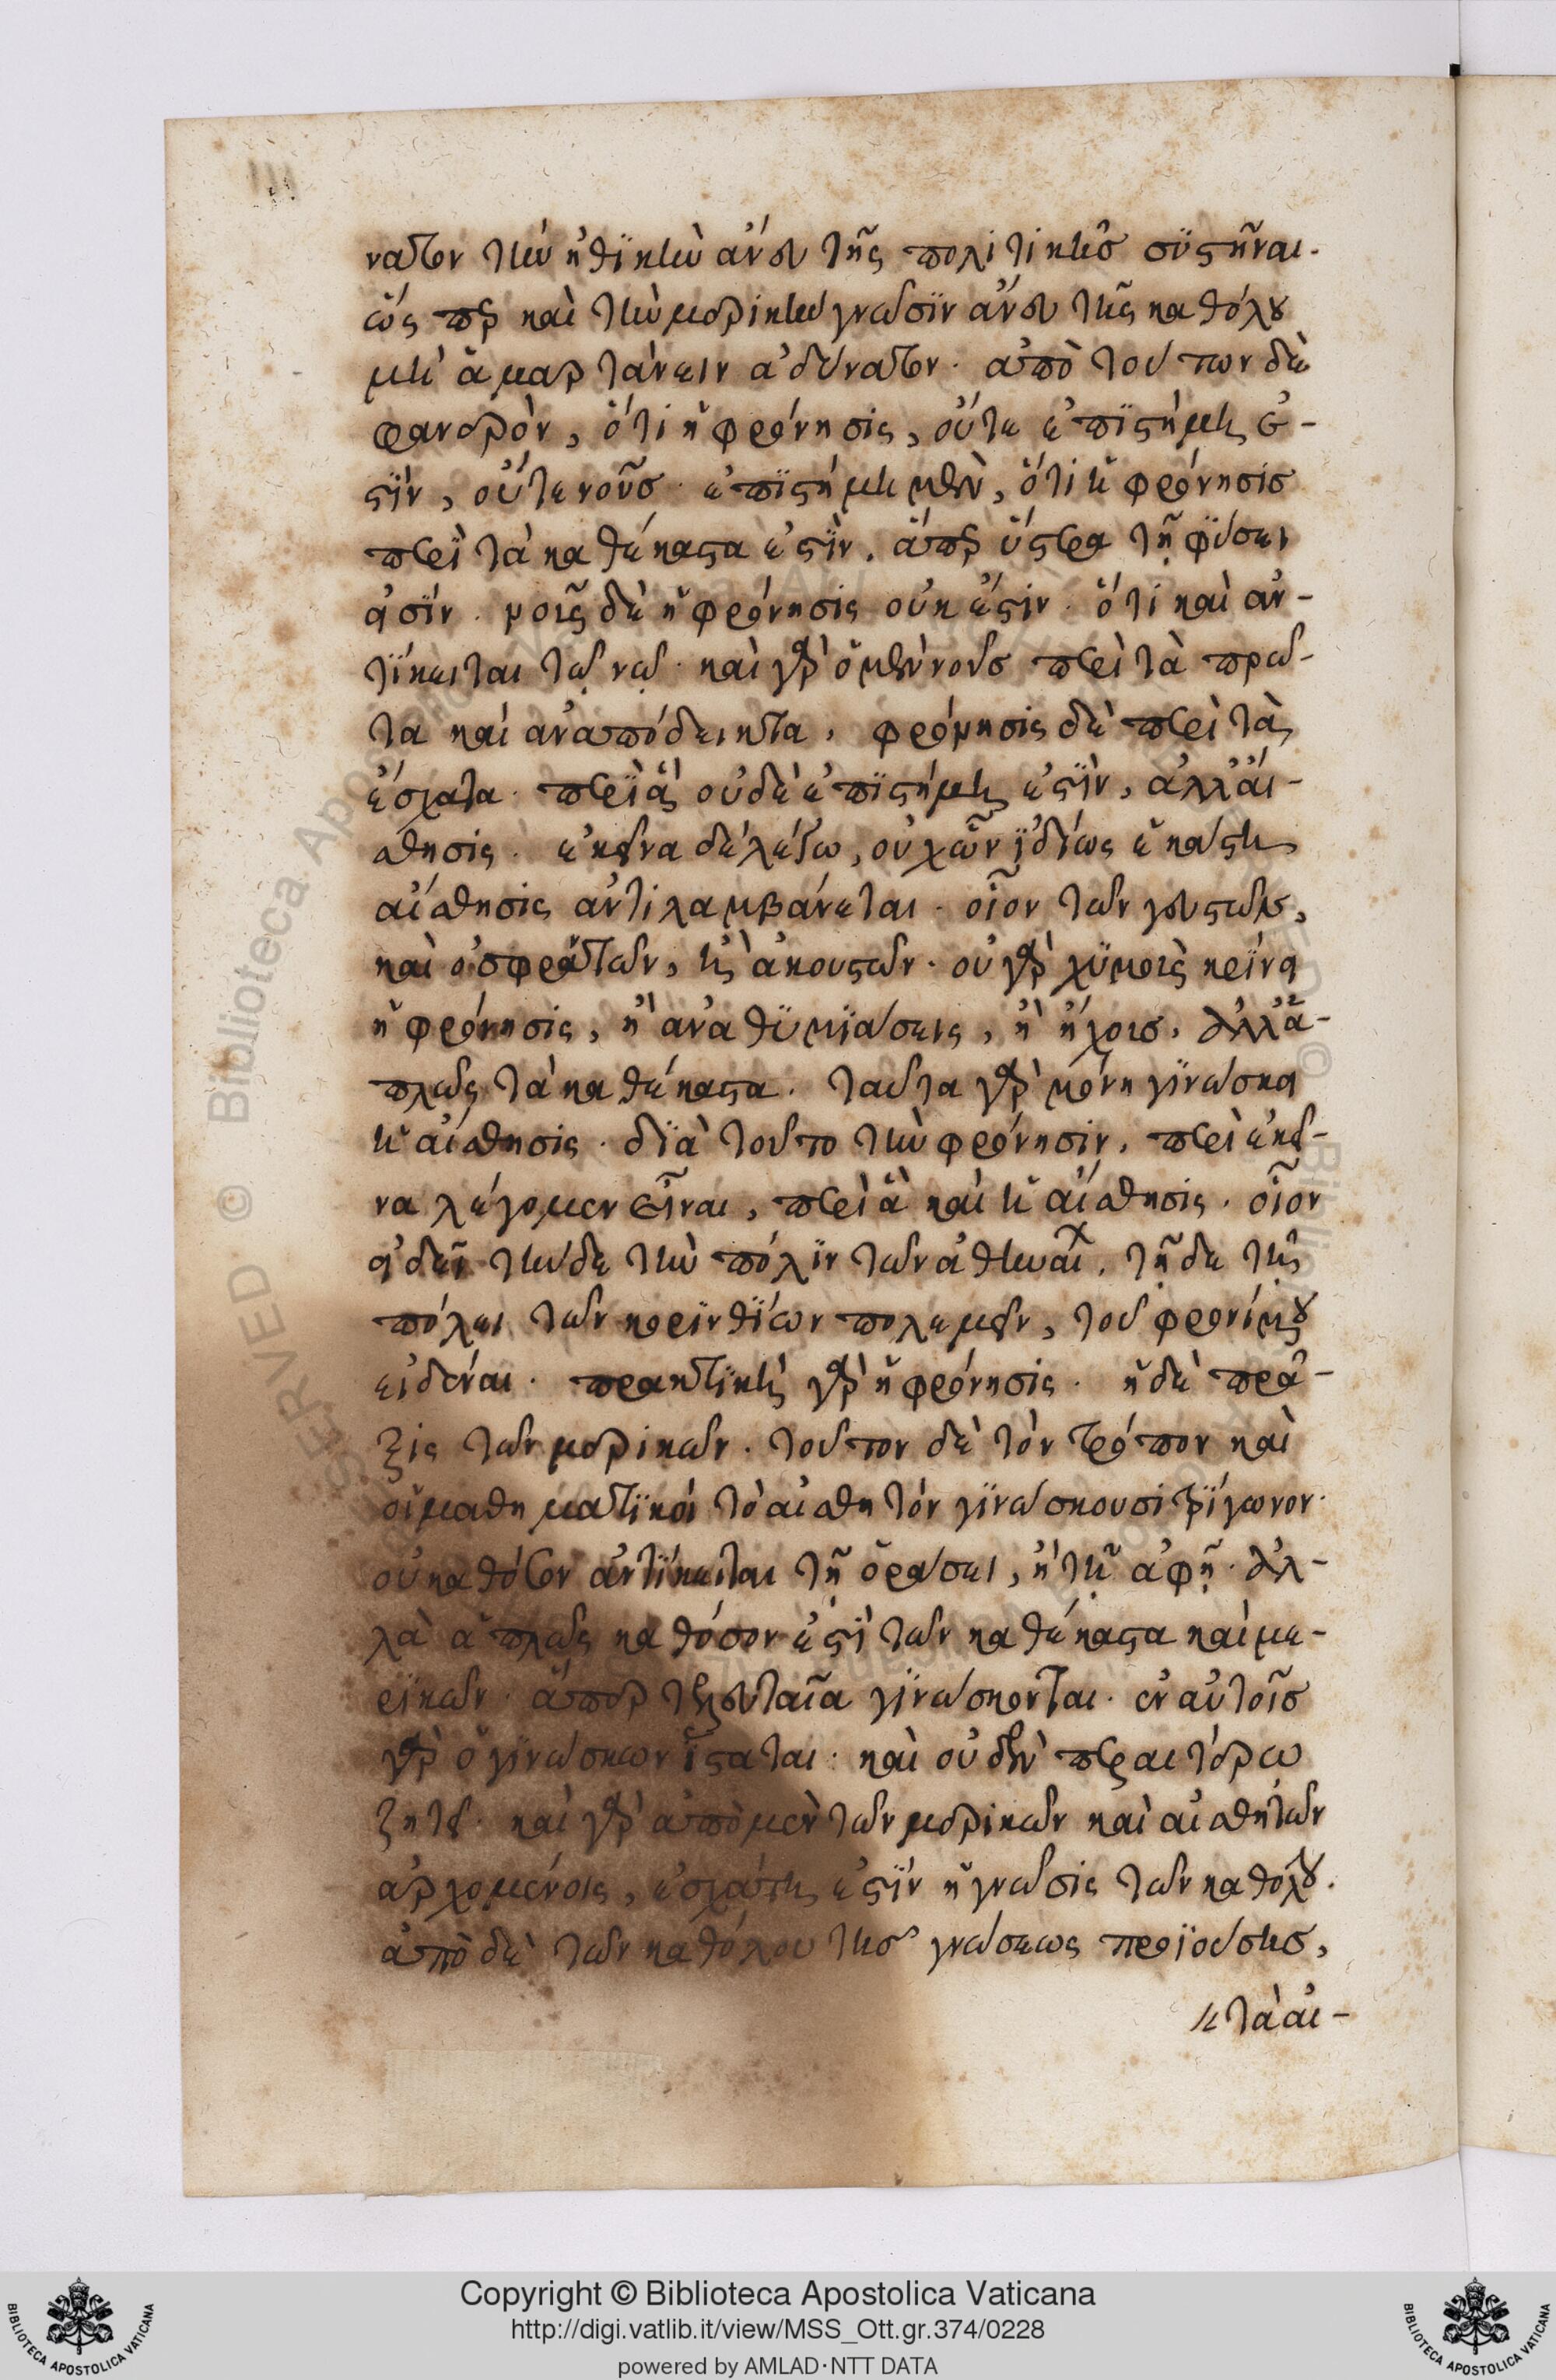 νατον τὴν ἠθικὴν ἄνευ τῆς πολιτικῆς συστῆναι.
ὥσπερ καὶ τὴν μερικὴν γνῶσιν ἄνευ τῆς καθόλου
μὴ ἁμαρτάνειν ἀδύνατον. ἀπὸ τούτων δὲ
φανερὸν, ὅτι ἡ φρόνησις, οὔτε ἐπιστήμη ἐ-
στὶν, οὔτε νοῦς. ἐπιστήμη μὲν, ὅτι ἡ φρόνησις
περὶ τὰ καθέκαστα ἐστὶν. ἅπερ ὕστερα τῇ φύσει
εἰσίν. νοῦς δὲ ἡ φρόνησις οὐκ ἔστιν. ὅτι καὶ ἀν-
τίκειται τῷ νῷ. καὶ γὰρ ὁ μὲν νοῦς περὶ τὰ πρῶ-
τα καὶ ἀναπόδεικτα, φρόνησις δὲ περὶ τὰ
ἔσχατα. περὶ ἃ οὐδὲ ἐπιστήμη ἐστὶν, ἀλλ' αἴ-
σθησις. ἐκεῖνα δὲ λέγω, οὐχ ὧν ἰδίως ἑκάστη
αἴσθησις ἀντιλαμβάνεται. οἷον τῶν γευστῶν,
καὶ ὀσφραντῶν, καὶ ἀκουστῶν. οὐ γὰρ χυμοὺς κρίνει
ἡ φρόνησις, ἢ ἀναθυμιάσεις, ἢ ἤχους, ἀλλ' ἁ-
πλῶς τὰ καθέκαστα. ταῦτα γὰρ μόνη γινώσκει
ἡ αἴσθησις. διὰ τοῦτο τὴν φρόνησιν, περὶ ἐκεῖ-
να λέγομεν εἶναι, περὶ ἃ καὶ ἡ αἴσθησις. οἷον
εἰ δεῖ τήνδε τὴν πόλιν τῶν ἀθηναί, τῇδε τῇ
πόλει τῶν κορινθίων πολεμεῖν, τοῦ φρονίμου
εἰδέναι. πρακτικὴ γὰρ ἡ φρόνησις. ἡ δὲ πρᾶ-
ξις τῶν μερικῶν. τοῦτον δὲ τὸν τρόπον καὶ
οἱ μαθηματικοὶ τὸ αἰσθητὸν γινώσκουσι τρίγωνον.
οὐ καθόσον ἀντίκειται τῇ ὁράσει, ἢ τῇ ἁφῇ. ἀλ-
λὰ ἁπλῶς καθόσον ἐστὶ τῶν καθέκαστα καὶ με-
ρικῶν. ἅπερ τελευταῖα γινώσκονται. ἐν αὐτοῖς
γὰρ ὁ γινώσκων ἵσταται. καὶ οὐδὲν περαιτέρω
ζητεῖ. καὶ γὰρ ἀπὸ μὲν τῶν μερικῶν καὶ αἰσθητῶν
ἀρχομένοις, ἐσχάτη ἐστὶν ἡ γνῶσις τῶν καθόλου.
ἀπὸ δὲ τῶν καθόλου τῆς γνώσεως προϊούσης,
τὰ αἰ-
Copyright © Biblioteca Apostolica Vaticana
http://digi.vatlib.it/view/MSS_Ott.gr.374/0228
powered by AMLAD·NTT DATA